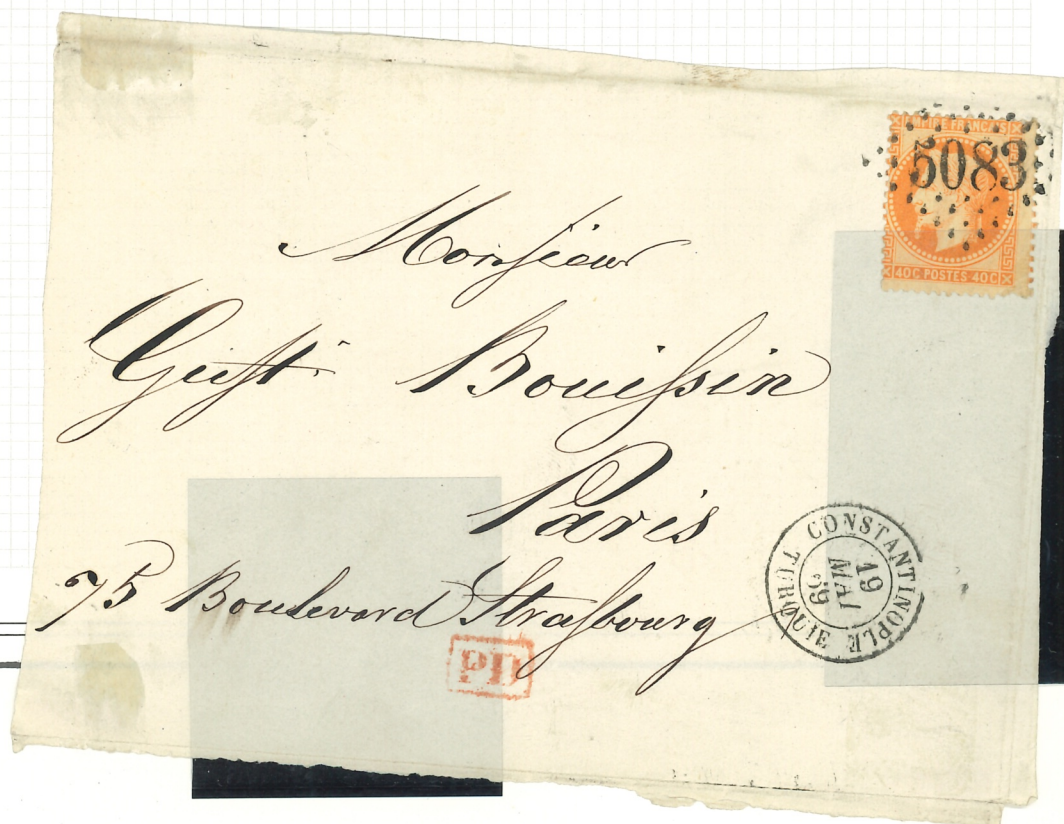 EMPIRE FRANÇAIS
5083
40C POSTES 40C
Monsieur
Gust. Bouissin
Paris
75 Boulevard Strasbourg
PD
CONSTANTINOPLE
19
MAI
69
TURQUIE